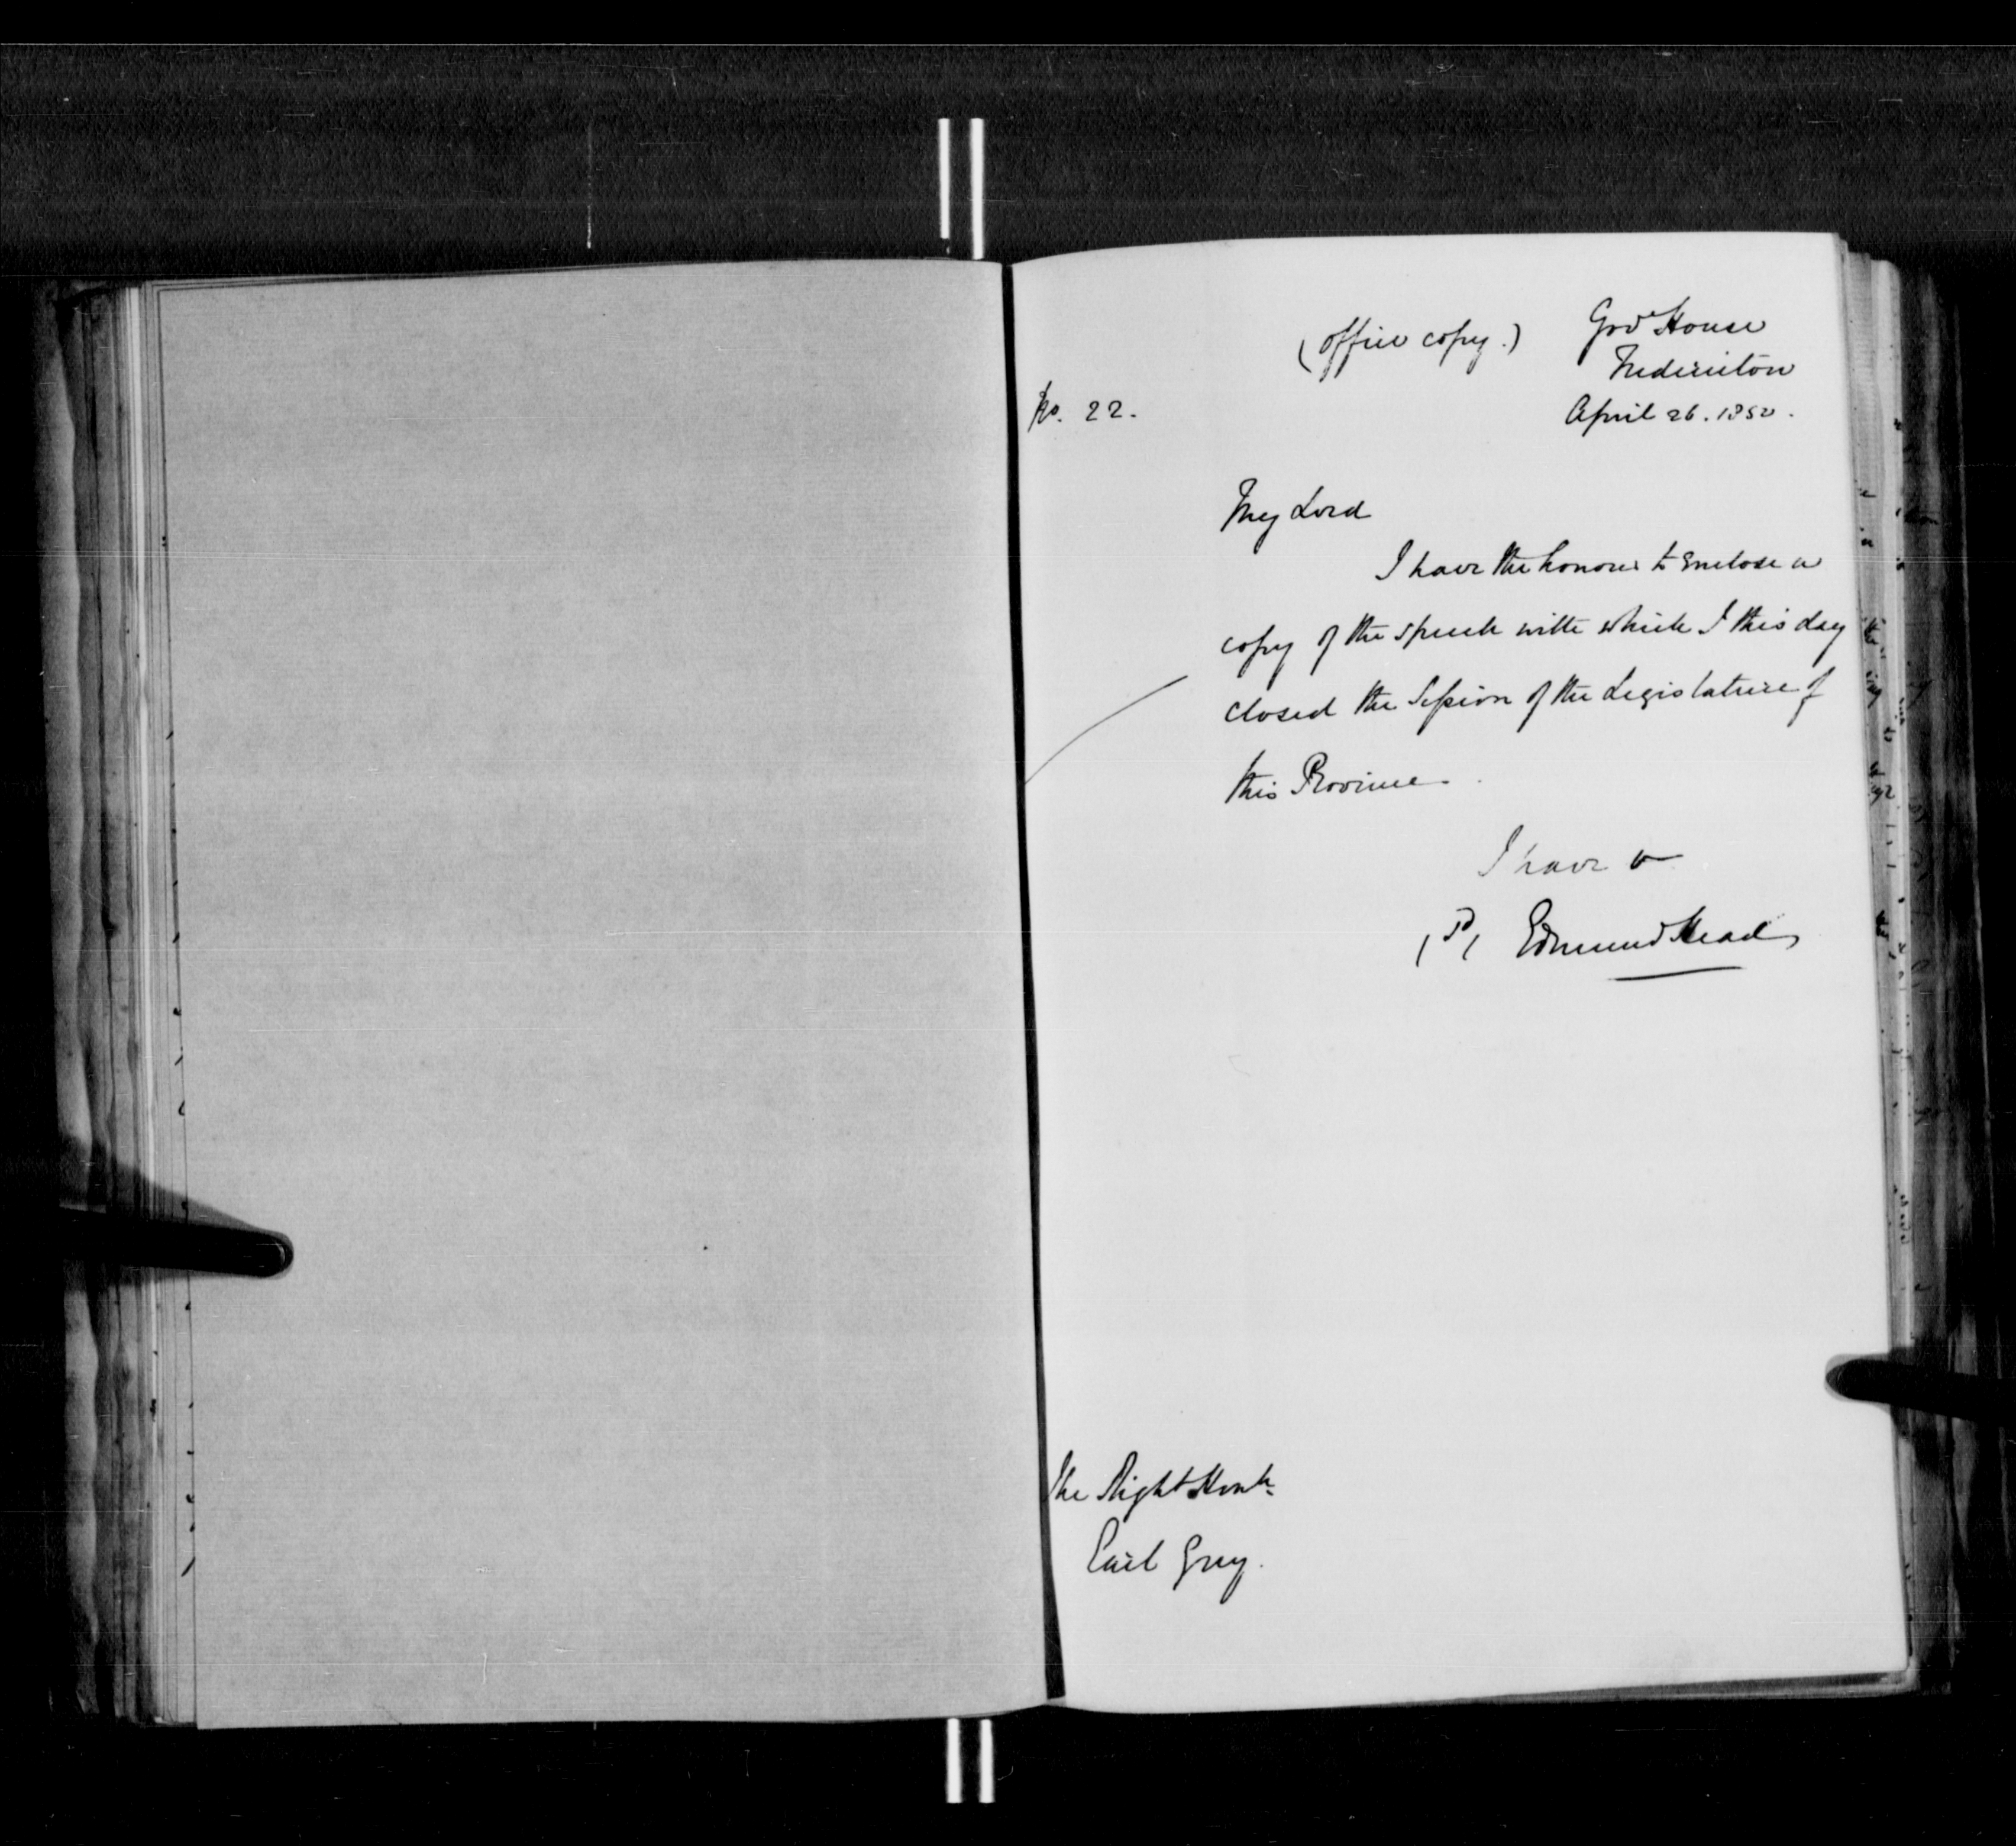 (Office copy.)
Govt House
Fredericton
No. 22.
April 26. 1850.
My Lord
I have the honour to enclose a
copy of the speech with which I this day
closed the Session of the Legislature of
this Province
I have &
(Sd) Edmund Head
The Right Honble
Earl Grey.